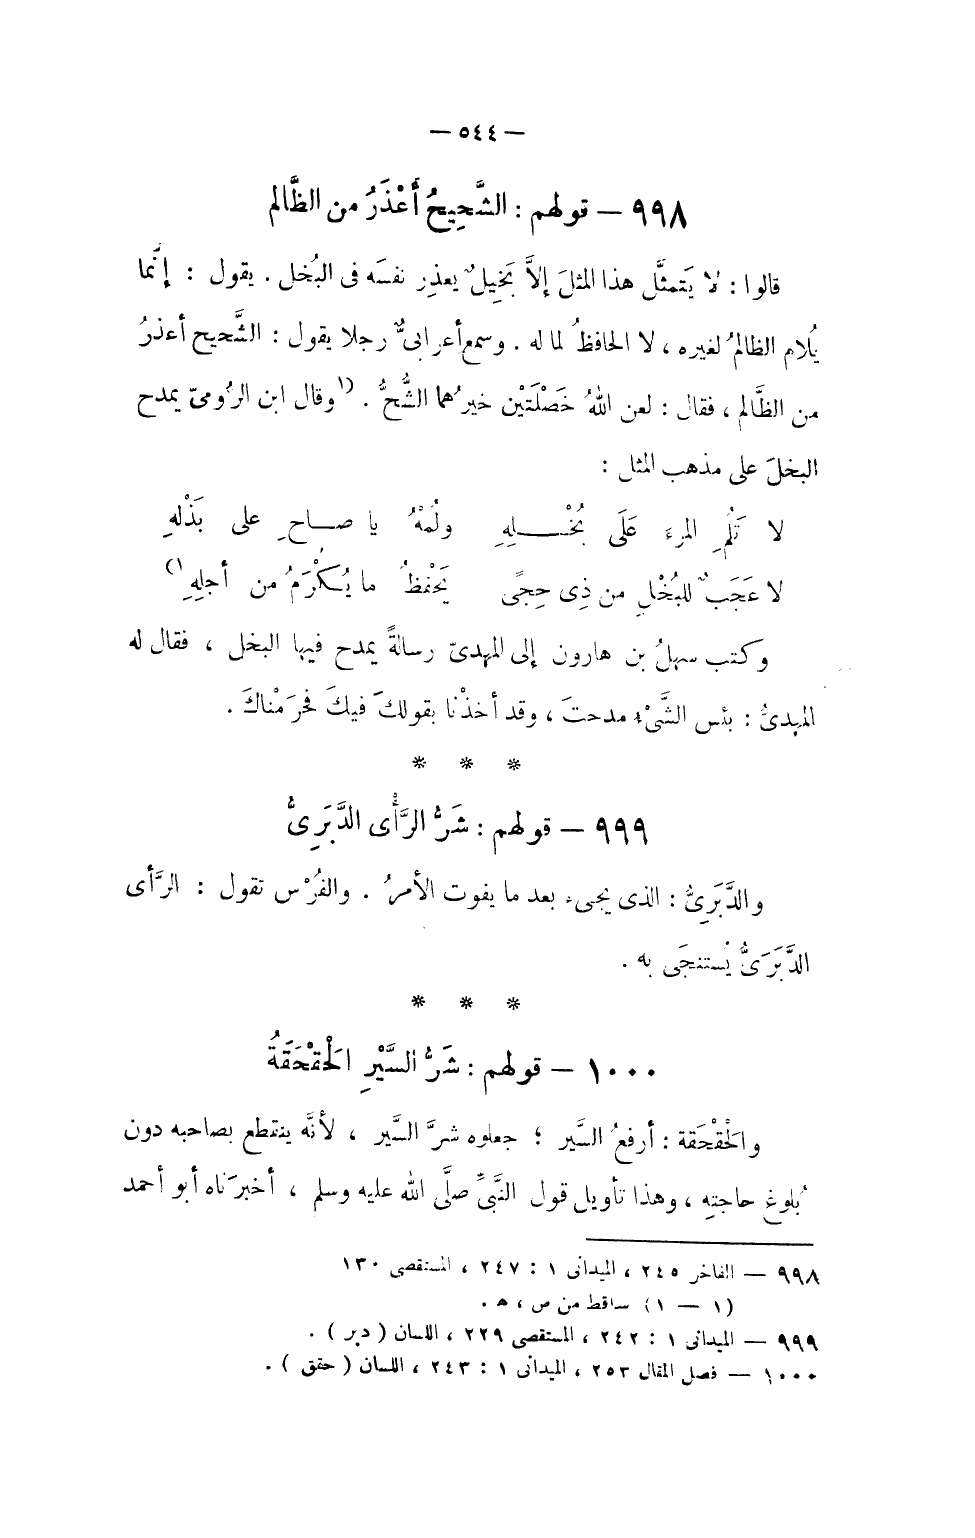 — ٥٤٤ —
٩٩٨ — قولهم : الشَّحِيحُ أَعْذَرُ من الظَّالم
قالوا : لا يَتمثَّل هذا المثلَ إلاَّ بَخِيلٌ يعذِر نفسَه فى البُخل . يقول : إنَّما
يُلام الظالمُ لغيره ، لا الحافظُ لما له . وسمع أعرابىٌّ رجلا يقول : الشَّحيح أعذرُ
من الظَّالم ، فقال : لعن اللهُ خَصْلَتَيْن خيرُهما الشُّحُّ . (١وقال ابن الرُّومىّ يمدح
البخلَ على مذهب المثل :
لا تَلُمِ المرءَ عَلَى بُخْـــلِهِ ولُمْهُ يا صـاحِ على بَذْلهِ
لا عَجَبٌ للبُخْلِ من ذِى حِجًى يَحْفظُ ما يُكْرَمُ من أجلِهِ١)
وكتب سهلُ بن هارون إلى المهدىّ رسالةً يمدح فيها البخل ، فقال له
المهدىُّ : بئس الشَّىْء مدحتَ ، وقد أخذْنا بقولكَ فيكَ فحَرَمْناكَ .
* * *
٩٩٩ — قولهم : شَرُّ الرَّأْى الدَّبَرِىُّ
والدَّبَرِىُّ : الذى يجىء بعد ما يفوت الأمرُ . والفُرْس تقول : الرَّأى
الدَّبَرَىُّ يُستنجَى به .
* * *
١٠٠٠ — قولهم : شَرُّ السَّيْرِ الحْقْحَقَةُ
والحْقْحَقة : أرفعُ السَّير ؛ جعلوه شرَّ السَّير ، لأنَّه ينقطع بصاحبه دون
بُلوغِ حاجتِه ، وهذا تأويل قول النَّبىِّ صلَّى الله عليه وسلم ، أخبرَناه أبو أحمد
٩٩٨ — الفاخر ٢٤٥ ، الميدانى ١ : ٢٤٧ ، المستقصى ١٣٠
(١ — ١) ساقط من ص ، ﻫ .
٩٩٩ — الميدانى ١ : ٢٤٢ ، المستقصى ٢٢٩ ، اللسان ( دبر ) .
١٠٠٠ — فصل المقال ٢٥٣ ، الميدانى ١ : ٢٤٣ ، اللسان ( حقق ) .